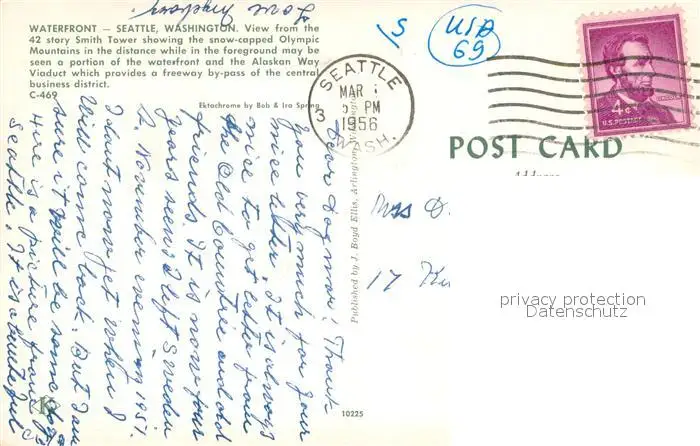 WATERFRONT — SEATTLE, WASHINGTON. View from the
42 story Smith Tower showing the snow-capped Olympic
Mountains in the distance while in the foreground may be
seen a portion of the waterfront and the Alaskan Way
Viaduct which provides a freeway by-pass of the central
business district.
C-469
Ektachrome by Bob & Ira Spring
Dear Dagmar! Thank
you very much for your
nice letter. It is always
nice to get letter from
the Old Countrie and old
friends. It is now four
years seen I left Sweden
2. November evening 1951.
I dont now yet when I
will come back. But I am
sure it will be some day
Here is a picture from
Seattle. It is a beuteful
Love
Published by J. Boyd Ellis, Arlington, Washington
10225
K
S
USA
69
SEATTLE
MAR
PM
3
1956
WASH.
4¢
U.S. POSTAGE
POST CARD
Address
Miss D
17
privacy protection
Datenschutz